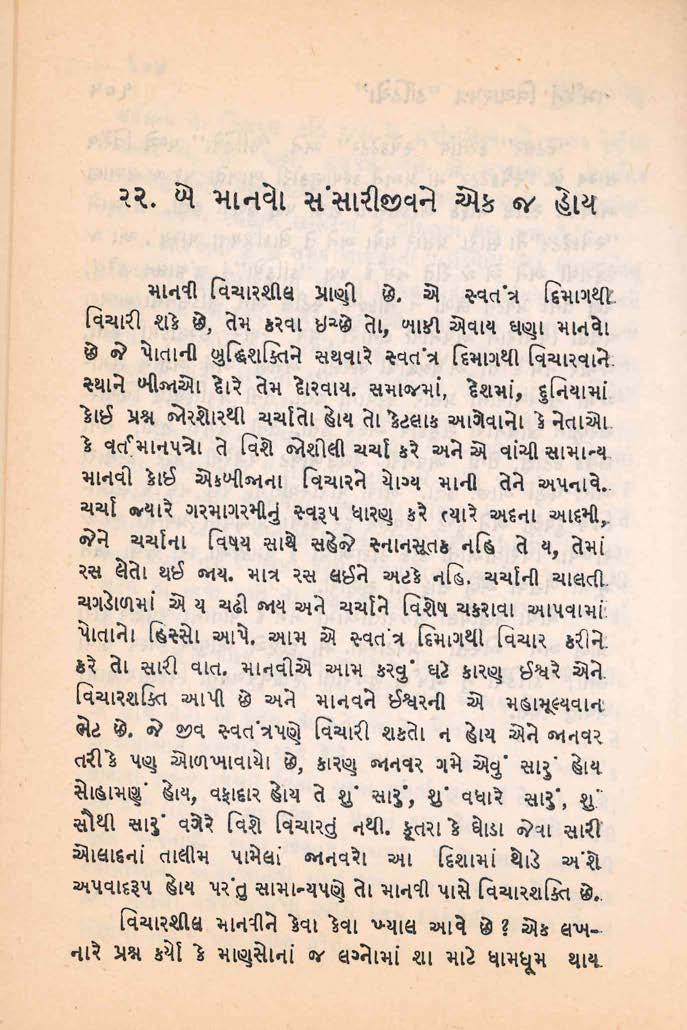 ૨૨. બે માનવો સંસારીજીવને એક જ હોય
માનવી વિચારશીલ પ્રાણી છે. એ સ્વતંત્ર દિમાગથી
વિચારી શકે છે, તેમ કરવા ઇચ્છે તો, બાકી એવાય ઘણા માનવો
છે જે પોતાની બુદ્ધિશક્તિને સથવારે સ્વતંત્ર દિમાગથી વિચારવાને
સ્થાને બીજાઓ દોરે તેમ દોરવાય. સમાજમાં, દેશમાં, દુનિયામાં
કોઈ પ્રશ્ન જોરશોરથી ચર્ચાતો હોય તો કેટલાક આગેવાનો કે નેતાઓ
કે વર્તમાનપત્રો તે વિશે જોશીલી ચર્ચા કરે અને એ વાંચી સામાન્ય
માનવી કોઈ એકબીજાના વિચારને યોગ્ય માની તેને અપનાવે.
ચર્ચા જ્યારે ગરમાગરમીનું સ્વરૂપ ધારણ કરે ત્યારે અદના આદમી,
જેને ચર્ચાના વિષય સાથે સહેજે સ્નાનસૂતક નહિ તે ય, તેમાં
રસ લેતો થઈ જાય. માત્ર રસ લઈને અટકે નહિ. ચર્ચાની ચાલતી
ચગડોળમાં એ ય ચઢી જાય અને ચર્ચાને વિશેષ ચકરાવા આપવામાં
પોતાનો હિસ્સો આપે. આમ એ સ્વતંત્ર દિમાગથી વિચાર કરીને
કરે તો સારી વાત. માનવીએ આમ કરવું ઘટે કારણ ઈશ્વરે એને
વિચારશક્તિ આપી છે અને માનવને ઈશ્વરની એ મહામૂલ્યવાન
ભેટ છે. જે જીવ સ્વતંત્રપણે વિચારી શકતો ન હોય એને જાનવર
તરીકે પણ ઓળખાવાયો છે, કારણ જાનવર ગમે એવું સારું હોય
સોહામણું હોય, વફાદાર હોય તે શું સારું, શું વધારે સારું, શું
સૌથી સારું વગેરે વિશે વિચારતું નથી. કૂતરા કે ઘોડા જેવા સારી
ઓલાદનાં તાલીમ પામેલાં જાનવરો આ દિશામાં થોડે અંશે
અપવાદરૂપ હોય પરંતુ સામાન્યપણે તો માનવી પાસે વિચારશક્તિ છે.
વિચારશીલ માનવીને કેવા કેવા ખ્યાલ આવે છે? એક લખ-
નારે પ્રશ્ન કર્યો કે માણસોનાં જ લગ્નોમાં શા માટે ધામધૂમ થાય